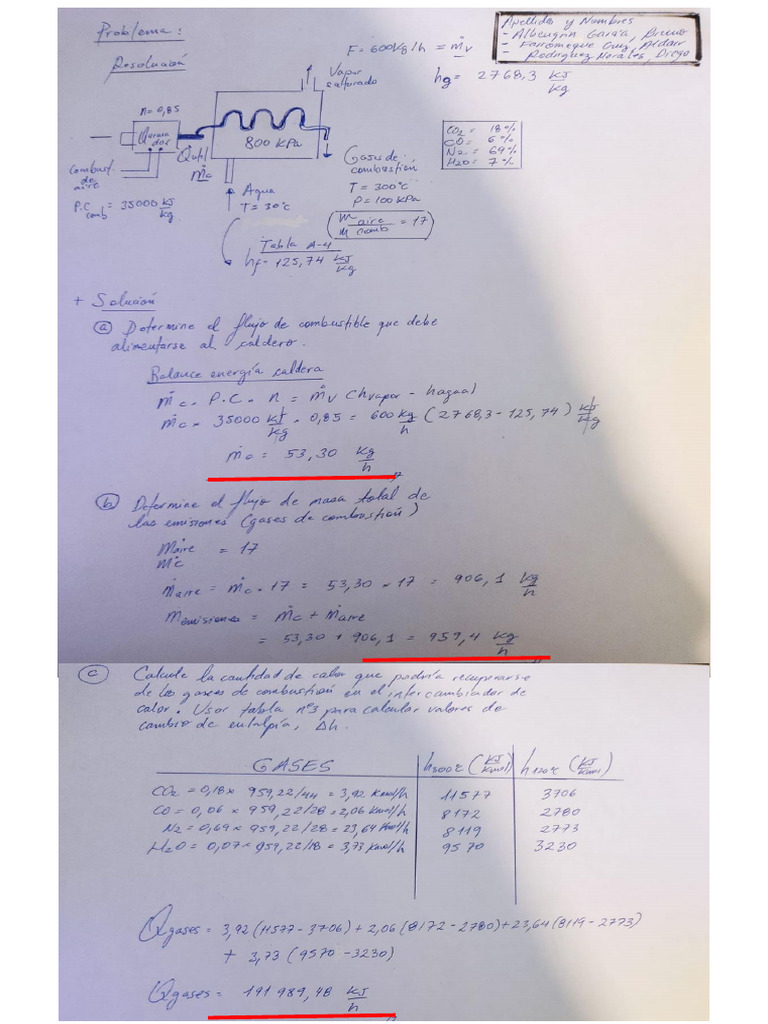 Problema:
Resolución
F = 600 Kg/h = ṁv
hg = 2768,3 KJ/Kg
Apellidos y Nombres
- Albengrin García, Bruno
- Farromeque Cruz, Aldair
- Rodriguez Norales, Diego
Vapor
saturado
n = 0,85
Quema
dor
800 KPa
Qutil
ṁc
Combust.
de
aire
P.C comb = 35000 KJ/Kg
Agua
T = 30°C
Gases de
combustión
T = 300°C
P = 100 KPa
m aire / m comb = 17
CO2 = 18%
CO = 6%
N2 = 69%
H2O = 7%
Tabla A-4
hf = 125,74 KJ/Kg
+ Solución
a) Determine el flujo de combustible que debe
alimentarse al caldero.
Balance energía caldera
ṁc . P.C . n = ṁv (hvapor - hagua)
ṁc . 35000 KJ/Kg . 0,85 = 600 Kg/h (2768,3 - 125,74) KJ/Kg
ṁc = 53,30 Kg/h
b) Determine el flujo de masa total de
las emisiones (gases de combustión)
ṁaire / ṁc = 17
ṁaire = ṁc . 17 = 53,30 . 17 = 906,1 Kg/h
ṁemisiones = ṁc + ṁaire
= 53,30 + 906,1 = 959,4 Kg/h
c) Calcule la cantidad de calor que podría recuperarse
de los gases de combustión en el intercambiador de
calor. Usar tabla n°3 para calcular valores de
cambio de entalpía, Δh.
GASES h300°C (KJ/Kmol) h120°C (KJ/Kmol)
CO2 = 0,18 x 959,22/44 = 3,92 Kmol/h 11577 3706
CO = 0,06 x 959,22/28 = 2,06 Kmol/h 8172 2780
N2 = 0,69 x 959,22/28 = 23,64 Kmol/h 8119 2773
H2O = 0,07 x 959,22/18 = 3,73 Kmol/h 9570 3230
Qgases = 3,92 (11577 - 3706) + 2,06 (8172 - 2780) + 23,64 (8119 - 2773)
+ 3,73 (9570 - 3230)
Qgases = 191 989,48 KJ/h